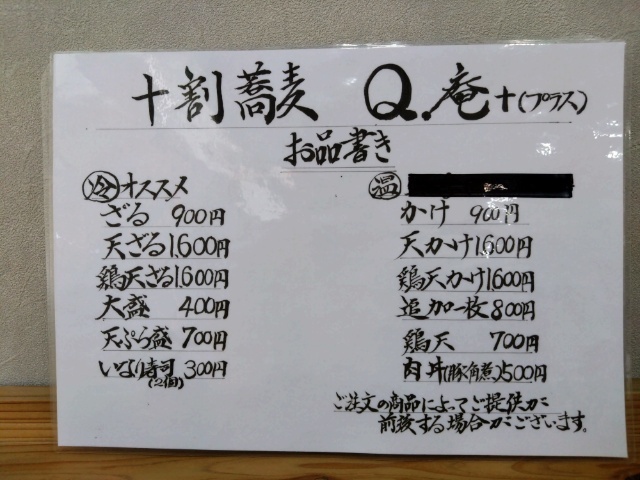 十割蕎麦 Q.庵+(プラス)
お品書き
冷 オススメ
ざる 900円
天ざる 1,600円
鶏天ざる 1,600円
大盛 400円
天ぷら盛 700円
いなり寿司 300円
(2個)
温
かけ 900円
天かけ 1600円
鶏天かけ 1600円
追加一枚 800円
鶏天 700円
肉丼(豚角煮) 500円
ご注文の商品によってご提供が
前後する場合がございます。